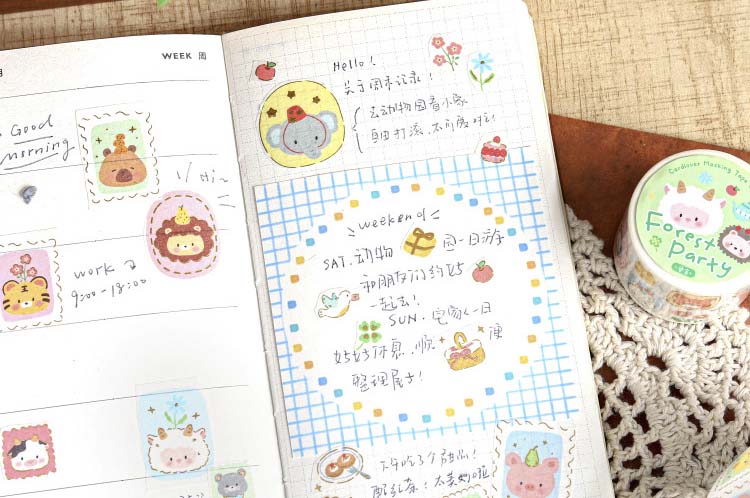 月
WEEK 周
Good
morning
Hi~
work
9:00-18:00
Hello!
关于周末记录!
去动物园看小象
自由打滚,不可废时!
weekend
SAT.动物园一日游
和朋友们约好
一起去!
SUN.宅家一日
好好休息,顺便
整理屋子!
下午吃了个甜点!
配红茶!太美妙啦
Cardlover Masking Tape
Forest
Party